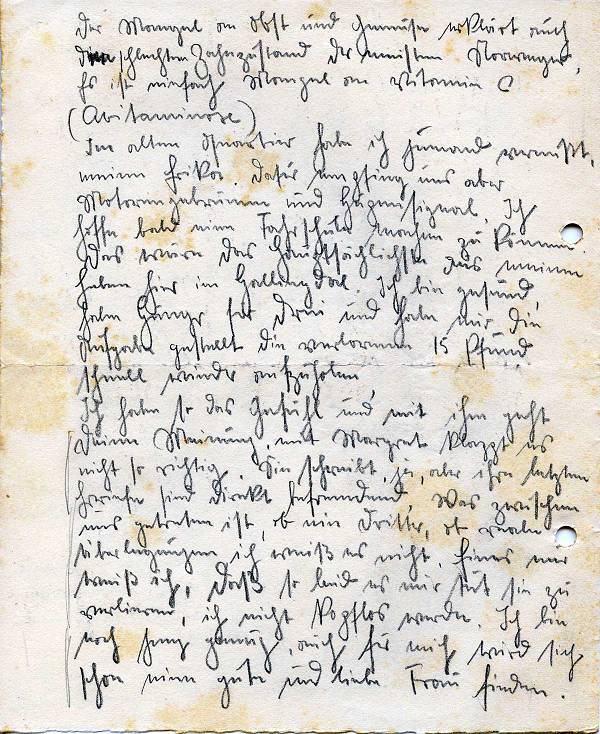 Der Mangel an Obst und Gemüse erklärt auch
den schlechten Zahnzustand der meisten Norweger.
Es ist einfach Mangel an Vitamin C
(Avitaminose)
Im alten Quartier habe ich jemand vermißt,
meinen Erika. Dafür empfing uns aber
Motorengebrumm und Hupensignal. Ich
hoffe bald eine Fahrschule machen zu können.
Das wäre das hauptsächlichste aus meinem
Leben hier im Hallingdal. Ich bin gesund,
habe Hunger für Drei und habe mir die
Aufgabe gestellt die verlorenen 15 Pfund
schnell wieder aufzuholen.
Ich habe so das Gefühl und mit ihm geht
Deine Meinung, mit Margret klappt es
nicht so richtig. Sie schreibt ja, aber ihre letzten
Briefe sind direkt befremdend. Was zwischen
uns getreten ist, ob ein Dritter, ob
Überlegungen ich weiß es nicht. Eines nur
weiß ich, daß so leid es mir tut sie zu
verlieren, ich nicht kopflos werde. Ich bin
noch jung genug, auch für mich wird sich
schon eine gute und liebe Frau finden.